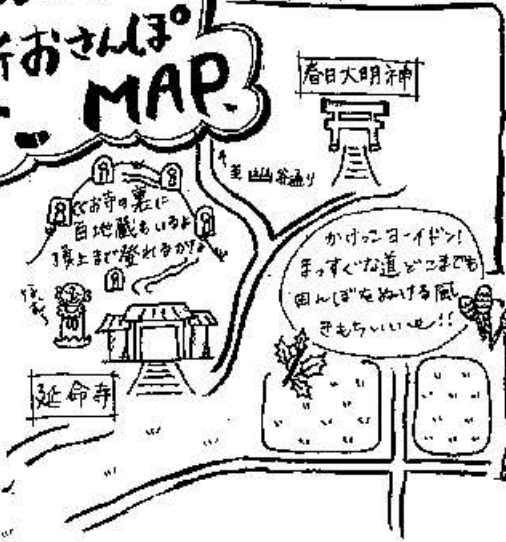 おさんぽ
MAP
春日大明神
お寺の裏に
百地蔵もいるよ
頂上まで登れるかな
延命寺
かけっこヨーイドン!
まっすぐな道どこまでも
田んぼをぬける風
きもちいいせ!!